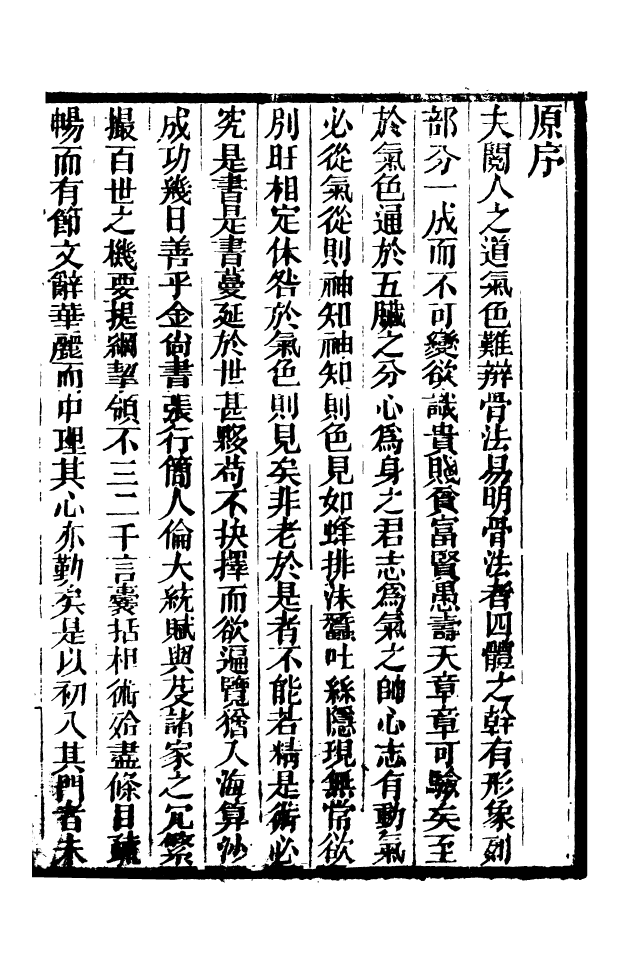 原序
夫閱人之道氣色難辨骨法易明骨法者四體之幹有形象列
部分一成而不可變欲識貴賤貧富賢愚壽夭章章可驗矣至
於氣色通於五臟之分心爲身之君志爲氣之帥心志有動氣
必從氣從則神知神知則色見如蜂排沫蠶吐絲隱現無常欲
別旺相定休咎於氣色則見矣非老於是者不能若精是術必
究是書是書蔓延於世甚夥苟不抉擇而欲遍覽猶入海算沙
成功幾日善乎金尙書張行簡人倫大統賦與芟諸家之冗繁
撮百世之機要提綱挈領不三二千言囊括相術殆盡條目疏
暢而有節文辭華麗而中理其心亦勤矣是以初入其門者未